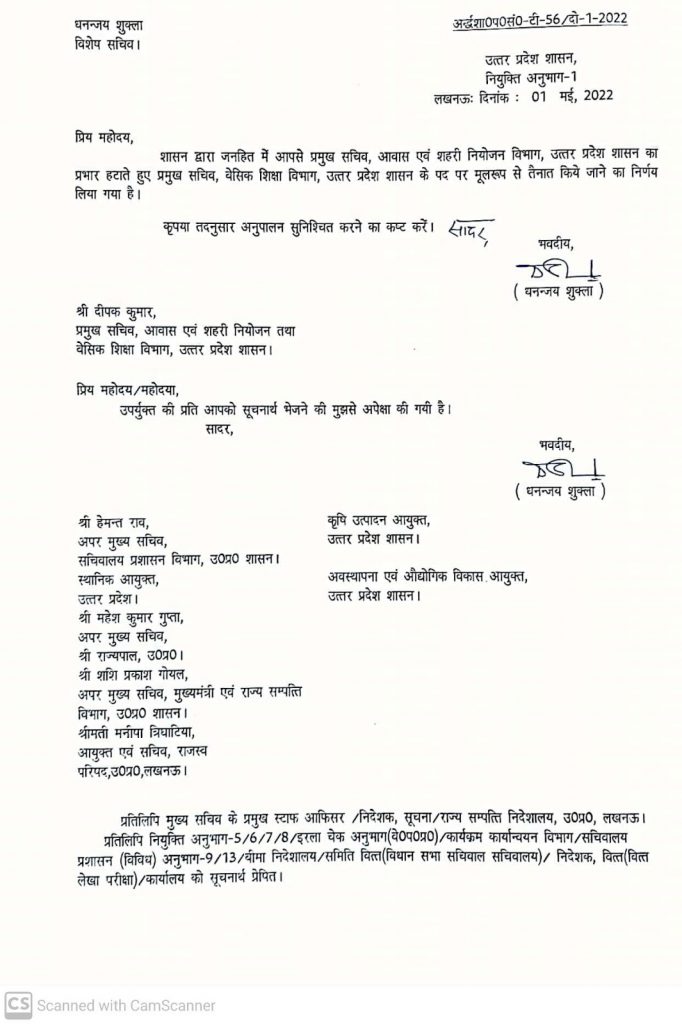 धनन्जय शुक्ला
विशेष सचिव।
अर्द्धशा0प0सं0-टी-56/दो-1-2022
उत्तर प्रदेश शासन,
नियुक्ति अनुभाग-1
लखनऊः दिनांक : 01 मई, 2022
प्रिय महोदय,
शासन द्वारा जनहित में आपसे प्रमुख सचिव, आवास एवं शहरी नियोजन विभाग, उत्तर प्रदेश शासन का
प्रभार हटाते हुए प्रमुख सचिव, बेसिक शिक्षा विभाग, उत्तर प्रदेश शासन के पद पर मूलरूप से तैनात किये जाने का निर्णय
लिया गया है।
कृपया तदनुसार अनुपालन सुनिश्चित करने का कष्ट करें। सादर,
भवदीय,
( धनन्जय शुक्ला )
श्री दीपक कुमार,
प्रमुख सचिव, आवास एवं शहरी नियोजन तथा
बेसिक शिक्षा विभाग, उत्तर प्रदेश शासन।
प्रिय महोदय/महोदया,
उपर्युक्त की प्रति आपको सूचनार्थ भेजने की मुझसे अपेक्षा की गयी है।
सादर,
भवदीय,
( धनन्जय शुक्ला )
श्री हेमन्त राव,
अपर मुख्य सचिव,
सचिवालय प्रशासन विभाग, उ0प्र0 शासन।
स्थानिक आयुक्त,
उत्तर प्रदेश।
श्री महेश कुमार गुप्ता,
अपर मुख्य सचिव,
श्री राज्यपाल, उ0प्र0।
श्री शशि प्रकाश गोयल,
अपर मुख्य सचिव, मुख्यमंत्री एवं राज्य सम्पत्ति
विभाग, उ0प्र0 शासन।
श्रीमती मनीषा त्रिघाटिया,
आयुक्त एवं सचिव, राजस्व
परिषद,उ0प्र0,लखनऊ।
कृषि उत्पादन आयुक्त,
उत्तर प्रदेश शासन।
अवस्थापना एवं औद्योगिक विकास आयुक्त,
उत्तर प्रदेश शासन।
प्रतिलिपि मुख्य सचिव के प्रमुख स्टाफ आफिसर /निदेशक, सूचना/राज्य सम्पत्ति निदेशालय, उ0प्र0, लखनऊ।
प्रतिलिपि नियुक्ति अनुभाग-5/6/7/8/इरला चेक अनुभाग(वे0प0प्र0)/कार्यक्रम कार्यान्वयन विभाग/सचिवालय
प्रशासन (विविध) अनुभाग-9/13/बीमा निदेशालय/समिति वित्त(विधान सभा सचिवाल सचिवालय)/ निदेशक, वित्त(वित्त
लेखा परीक्षा)/कार्यालय को सूचनार्थ प्रेषित।
CS Scanned with CamScanner